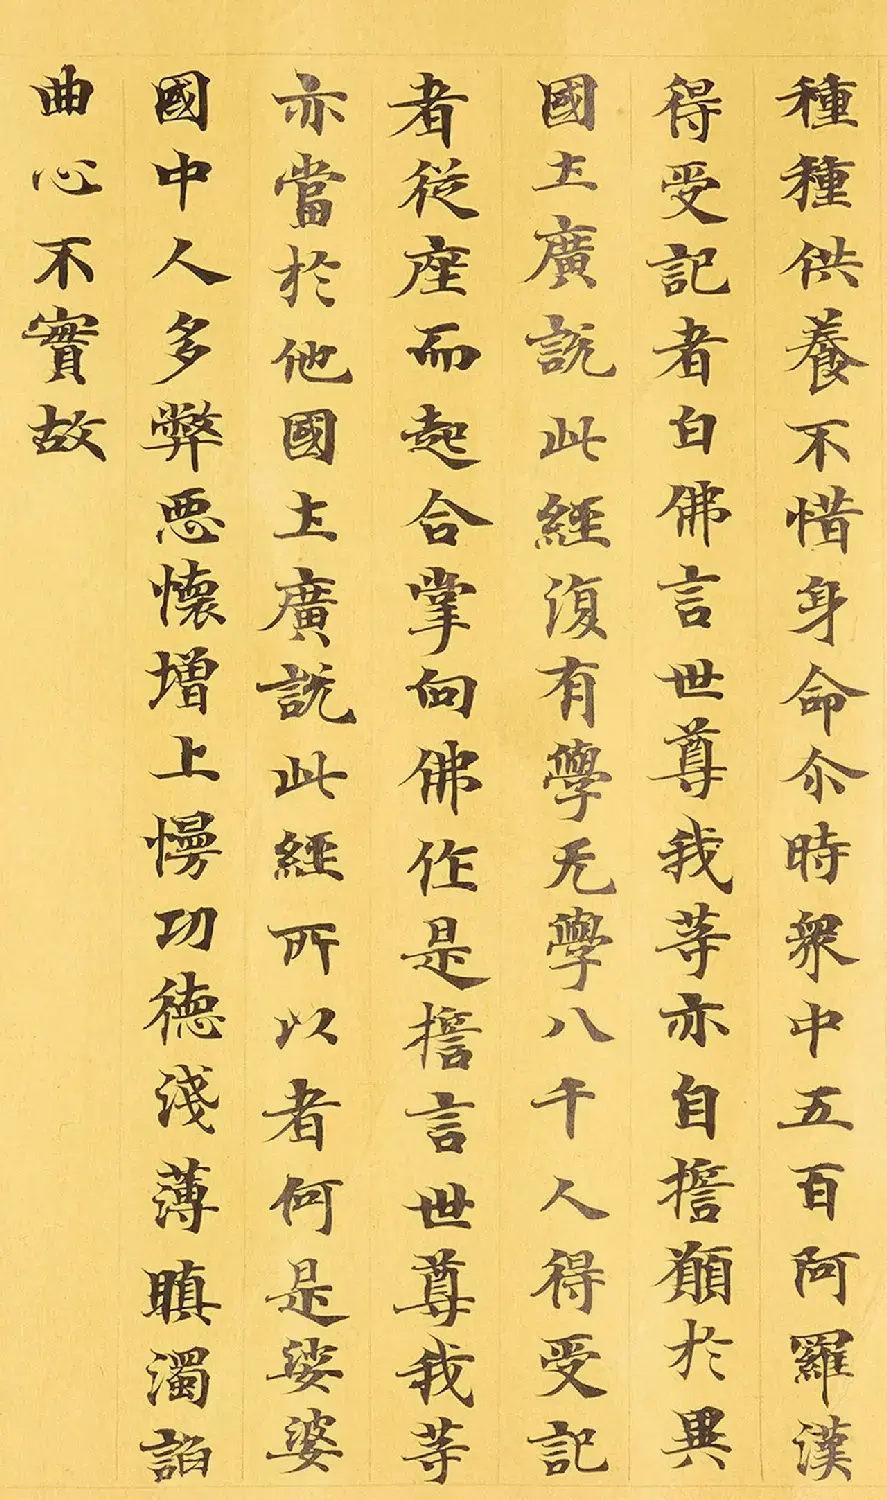 種種供養不惜身命尒時衆中五百阿羅漢
得受記者白佛言世尊我等亦自擔願於異
國土廣説此經復有學无學八千人得受記
者從座而起合掌向佛作是擔言世尊我等
亦當於他國土廣説此經所以者何是娑婆
國中人多弊惡懷增上慢功德淺薄瞋濁諂
曲心不實故